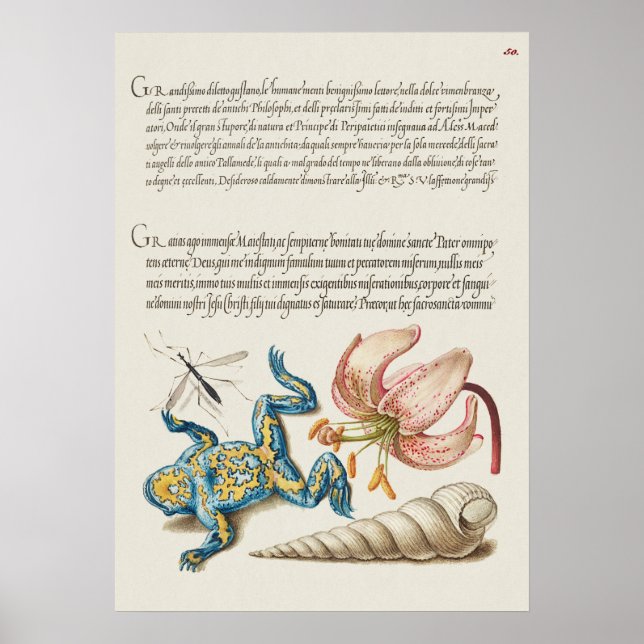 50.
GRandissimo diletto gustano, le humane menti benignissimo lettore, nella dolce rimembranza
delli santi precetti de antichi Philosophi, et delli preclarissimi fatti de inditti et fortissimi Imper
atori, Onde il gran stupore di natura et Principe di Peripatetici insegnaua ad Aless. Maced
volgere & riuolgere gli annali de la antichita, da quali sempre haueria per la sola mercede, delli sacra
ti augelli dello amico Pallamede, li quali a mal grado del tempo ne liberano dalla obliuione, di cose tan
to degne et eccellenti, Desideroso caldamente dimonstrare alla Illꝭ & Rma S. V laffettione grandiss
GRatias ago immensæ Maiestati, ac sempiternę bonitati tuę, domine sancte Pater omnipo
tens æternę Deus, qui me indignum famulum tuum et peccatorem miserum, nullis meis
meis meritis, immo tuis multis et immensis exigentibus miserationibus, corpore et sangui
ne domini nostri Jesu Christi, filij tui dignatus es saturare, Pręcor, ut hęc sacrosancta commu